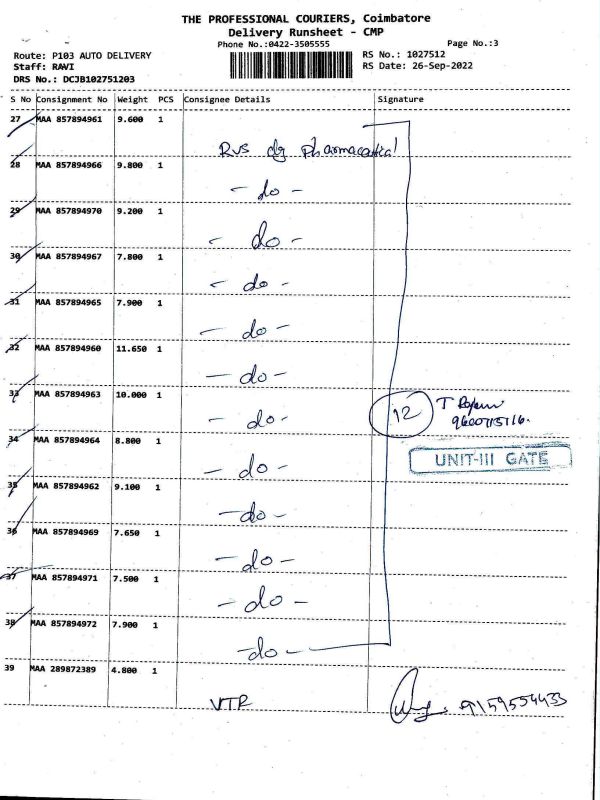 THE PROFESSIONAL COURIERS, Coimbatore
Delivery Runsheet - CMP
Phone No.:0422-3505555
Page No.:3
Route: P103 AUTO DELIVERY
RS No.: 1027512
Staff: RAVI
RS Date: 26-Sep-2022
DRS No.: DCJB102751203
S No Consignment No Weight PCS Consignee Details Signature
27 MAA 857894961 9.600 1
Rvs dg pharmaceutical
28 MAA 857894966 9.800 1
- do -
29 MAA 857894970 9.200 1
- do -
30 MAA 857894967 7.800 1
- do -
31 MAA 857894965 7.900 1
- do -
32 MAA 857894960 11.650 1
- do -
33 MAA 857894963 10.000 1
- do -
12
T
34 MAA 857894964 8.800 1
- do -
UNIT-III GATE
35 MAA 857894962 9.100 1
- do -
36 MAA 857894969 7.650 1
- do -
37 MAA 857894971 7.500 1
- do -
38 MAA 857894972 7.900 1
- do -
39 MAA 289872389 4.800 1
VTR
9159554433